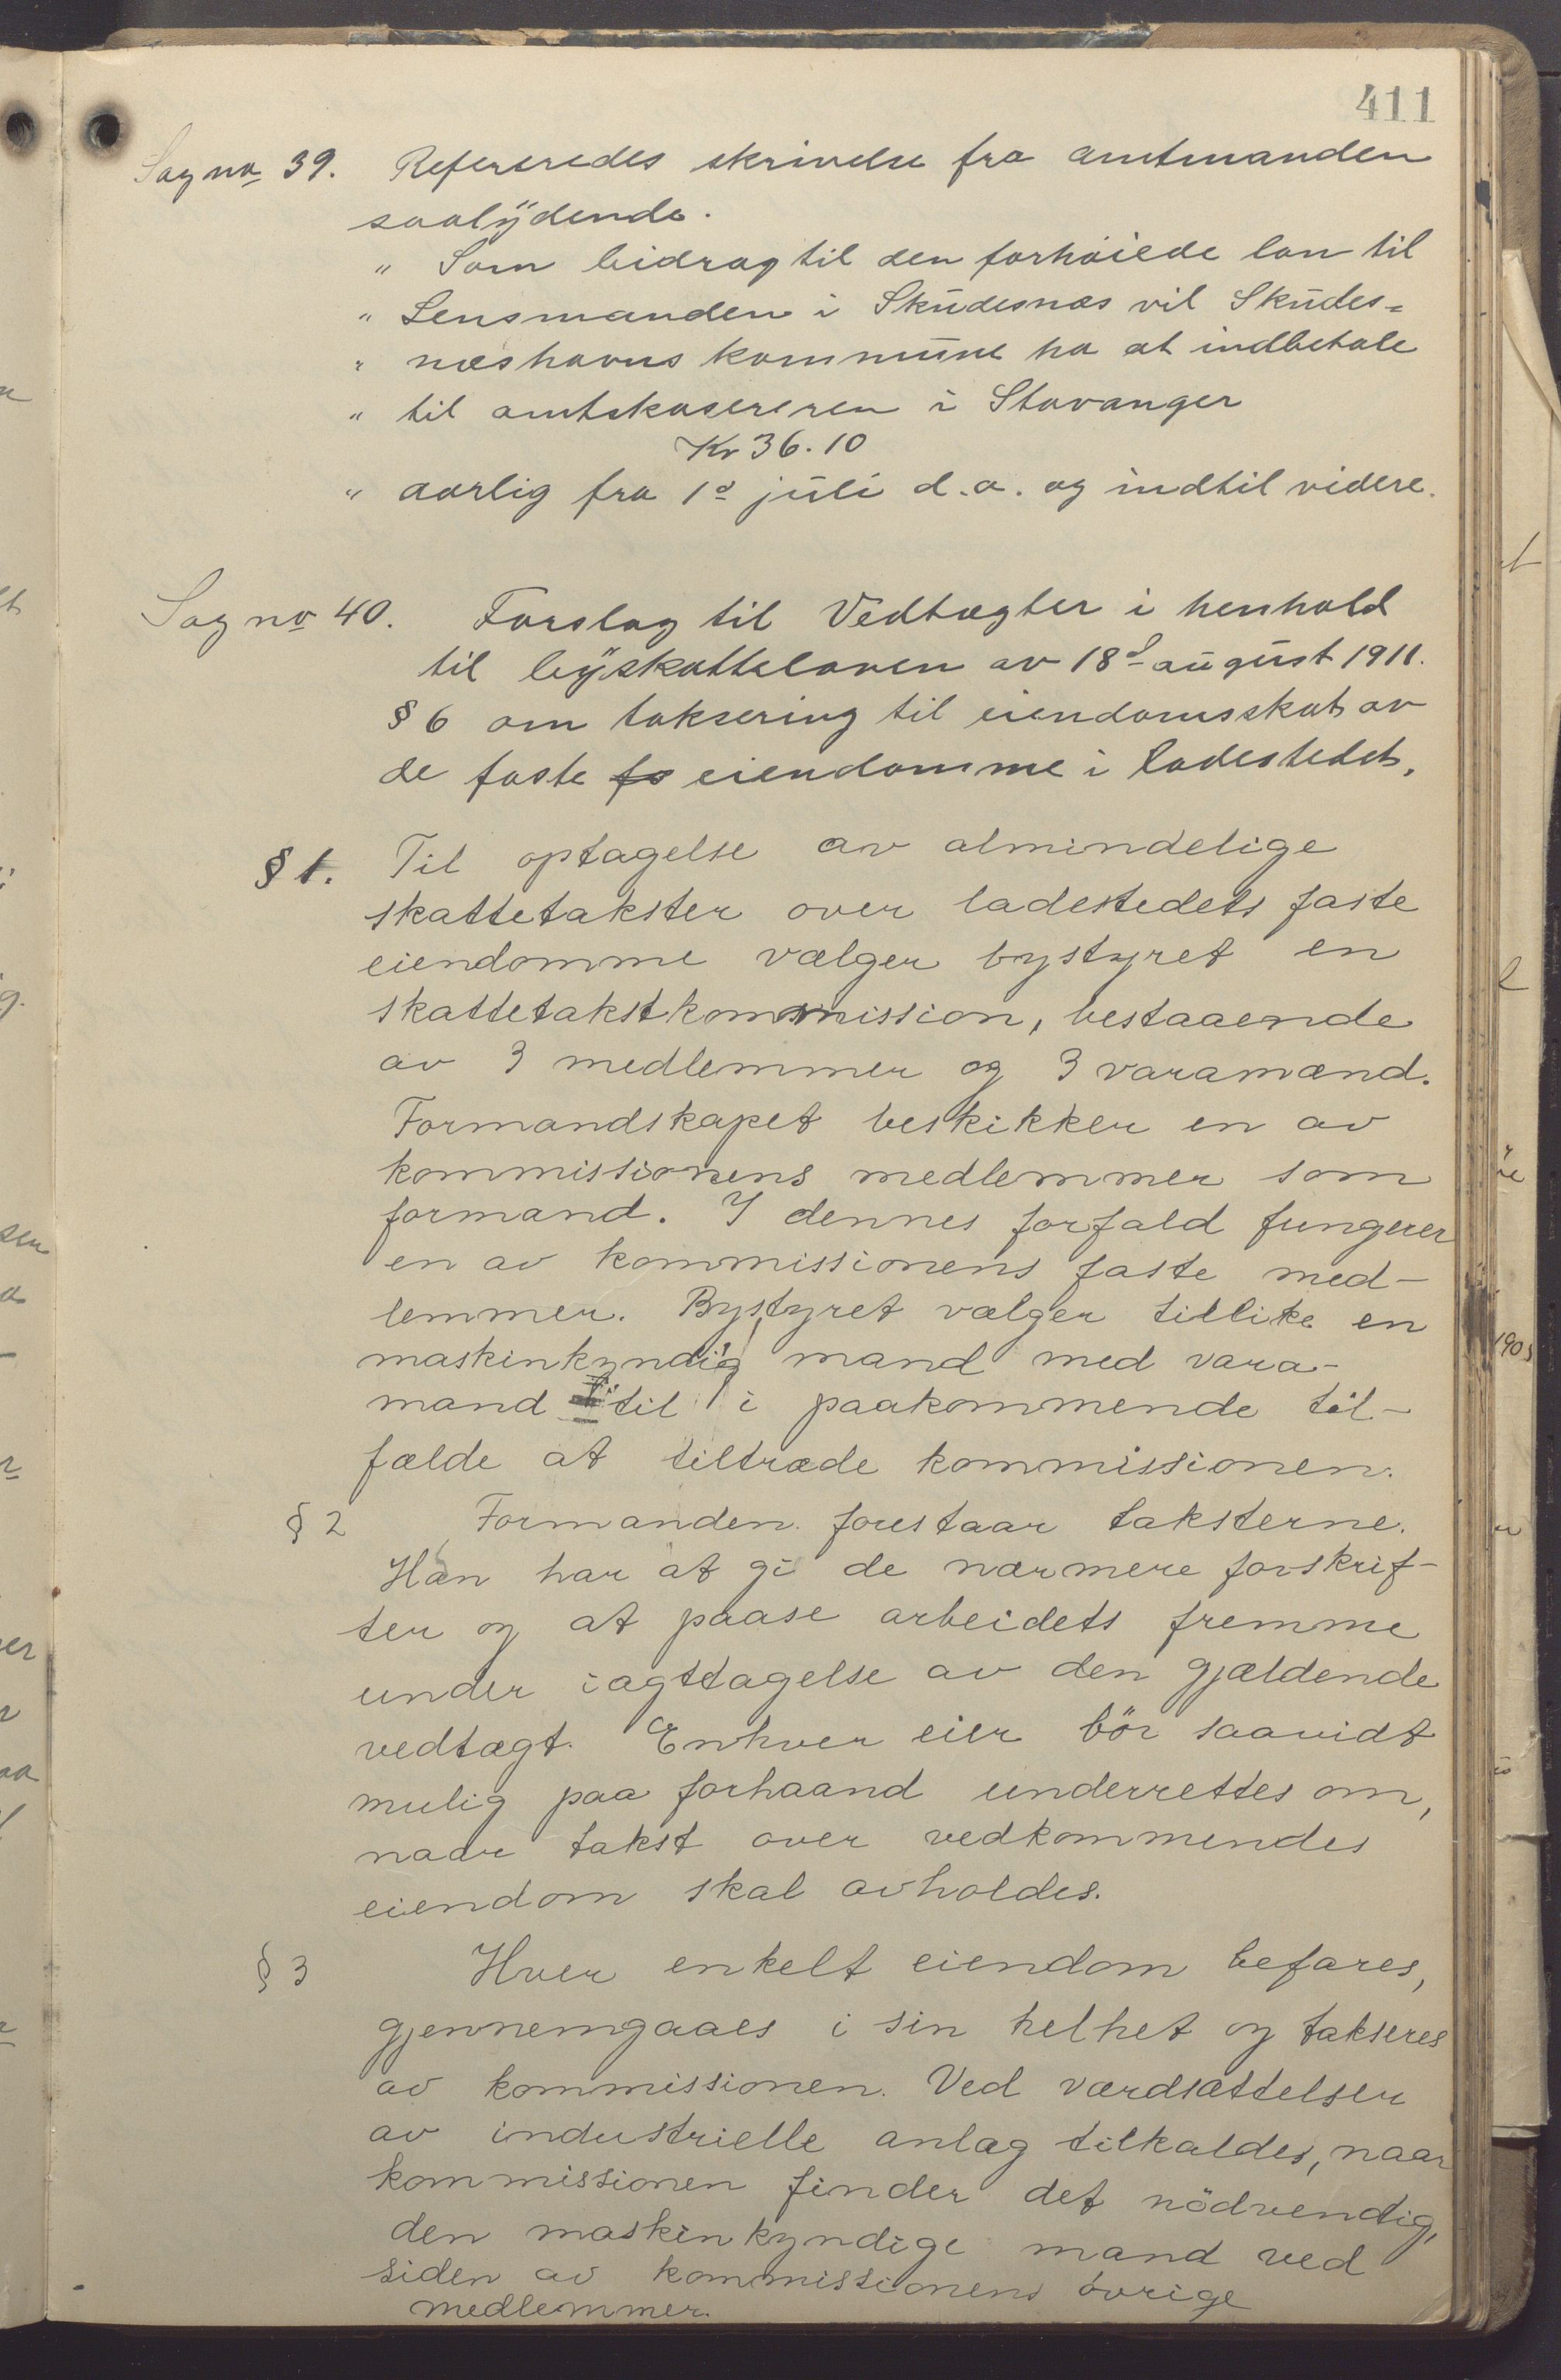 411
Sag no 39. Refereredes skrivelse fra amtmanden
saalydende.
" Som bidrag til den forhöiede lön til
" Lensmanden i Skudesnæs vil Skudes=
" næshavns kommune ha at indbetale
" til amtskasereren i Stavanger
Kr 36.10
" aarlig fra 1ˢ juli d.a. og indtil videre.
Sag no 40. Forslag til Vedtægter i henhold
til byskatteloven av 18ᵈ august 1911.
§ 6 om taksering til eiendomsskat av
de faste fs eiendomme i ladestedet.
§ 1. Til optagelse av almindelige
skattetakster over ladestedets faste
eiendomme vælger bystyret en
skattetakstkommission, bestaaende
av 3 medlemmer og 3 varamænd.
Formandskapet beskikker en av
kommissionens medlemmer som
formand. I dennes forfald fungerer
en av kommissionens faste med-
lemmer. Bystyret vælger tillike en
maskinkyndig mand med vara-
mand til i paakommende til-
fælde at tiltræde kommissionen.
§ 2 Formanden forestaar taksterne.
Han har at gi de nærmere forskrif-
ter og at paase arbeidets fremme
under iagttagelse av den gjældende
vedtægt. Enhver eier bör saavidt
mulig paa forhaand underrettes om,
naar takst over vedkommendes
eiendom skal avholdes.
§ 3 Hver enkelt eiendom befares,
gjennemgaaes i sin helhet og takseres
av kommissionen. Ved værdsættelser
av industrielle anlæg tilkaldes, naar
kommissionen finder det nödvendig,
den maskinkyndige mand ved
siden av kommissionens övrige
medlemmer.